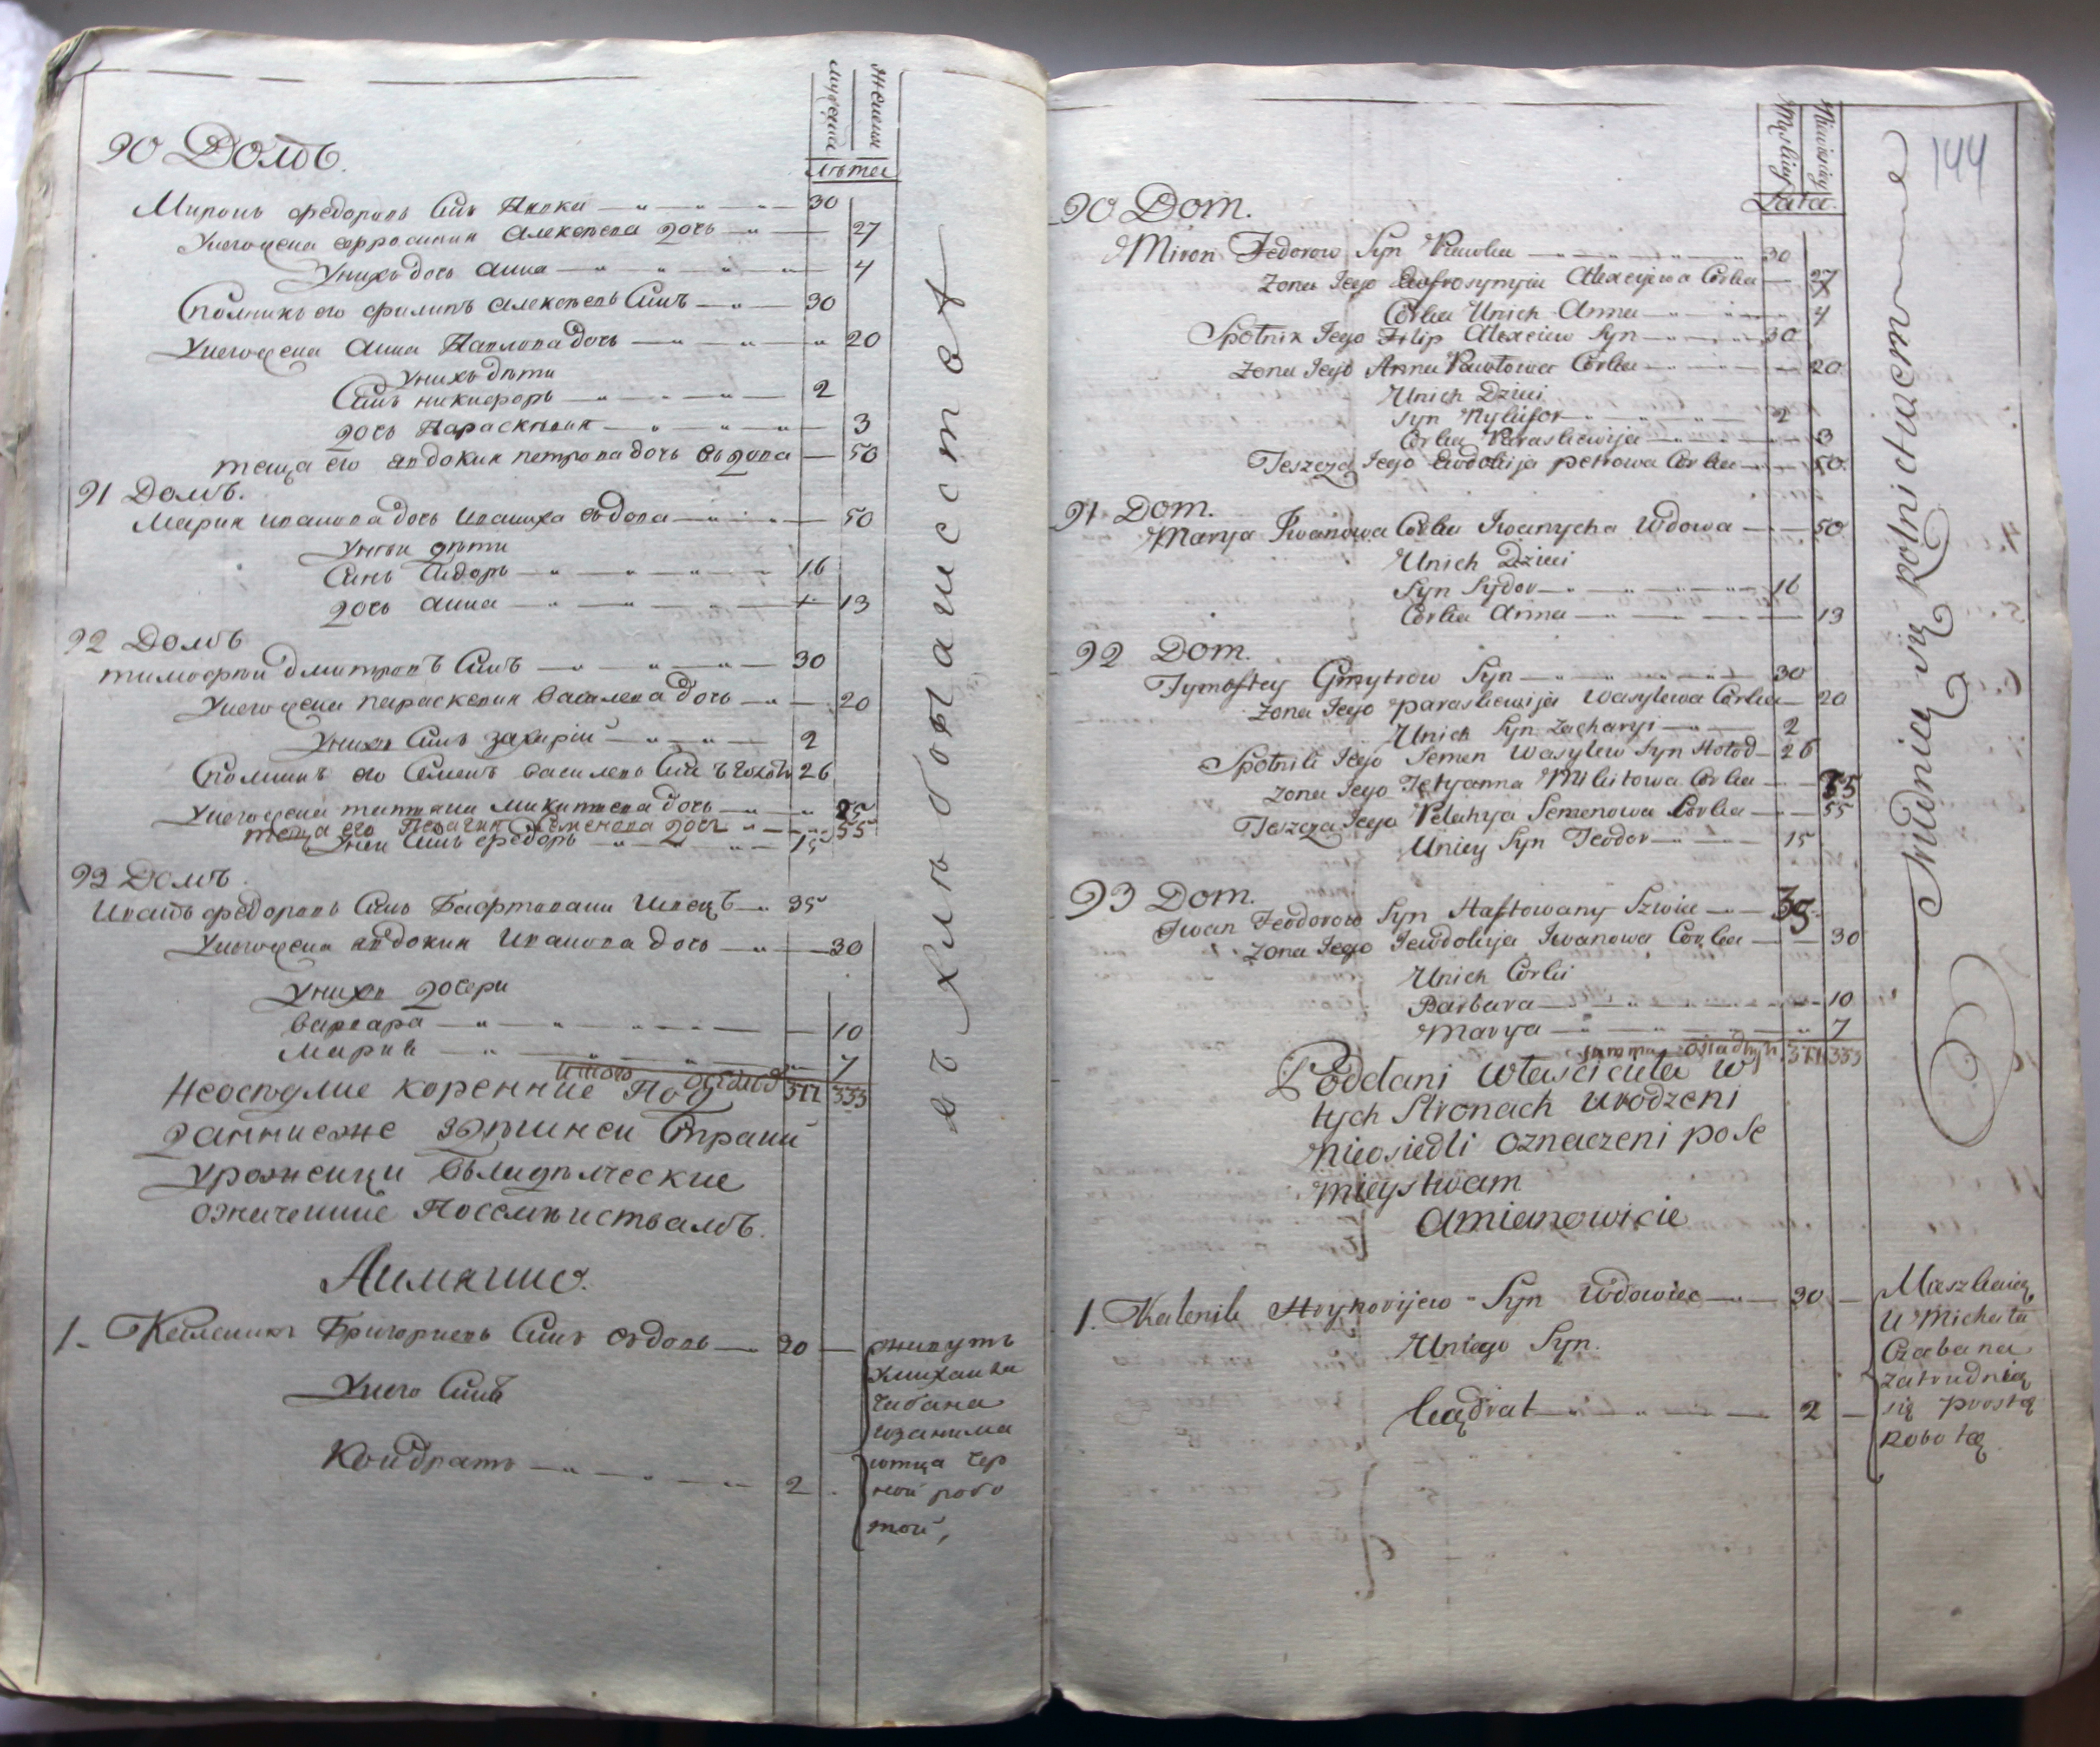 мужеска
женска
лѣта
90 Домъ.
Миронъ Федоровъ Синъ Павка 30
Унего жена Ефросиния Алексѣева дочь 27
Унихъ дочь Анна 4
Сполникъ его Филипъ Алексѣевъ Синъ 30
Унего жена Анна Павлова дочь 20
Унихъ дѣти
Синъ Никифоръ 2
дочь Параскевия 3
теща его Явдокия Петрова дочь вдова 50
91 Домъ.
Мария Иванова дочь Иваниха вдова 50
Унеи дѣти
Синъ Сидоръ 16
дочь Анна 13
92 Домъ
Тимофѣй Дмитровъ Синъ 30
Унего жена Параскевия Василева дочь 20
Унихъ Синъ Захарій 2
Сполникъ его Семенъ Василевъ Синъ 26
Унего жена Титяна Микитеева дочь 25
теща его Пелагия Семенова дочь 55
Унеи Синъ Федоръ 15
93 Домъ
Иванъ Федоровъ Синъ Гафтовани Швецъ 35
Унего жена Явдокия Иванова дочь 30
Унихъ дочери
Варвара 10
Мария 7
итого осѣдлих 377 353
Неосѣдлие коренние под
данние же здѣшнеи Страни
Уроженци
означенние Посемѣиствамъ.
1. Каленикъ Григориевъ Синъ вдовъ 30
Унего Синъ
Кондратъ 2
живутъ
Умихаила
Чабана
изанима
ютца чер
ной робо
той,
въ хлѣбопашестве
144
Męskiey
Niewieskiey
Lata.
90 Dom.
Miron Fedorow Syn Pawka 30
Zona Jego Eufrosynyia Alexeyewa Corka 27
Corka Unich Anna 4
Spolnik Jego Filip Alexeiew Syn 30
Zona Jego Anna Pawłowa Corka 20
Unich Dzieci
Syn Nykifor 2
Corka Paraskiewija 3
Teszcza Jego Ewdokija petrowa Corka 50.
91 Dom.
Marya Iwanowa Corka Iwanycha Wdowa 50
Unich Dzieci
Syn Sydor 16
Corka Anna 13
92 Dom.
Tymoftey Gmytrow Syn 30
Zona Jego Paraskiewija Wasylewa Corka 20
Unich Syn Zacharyi 2
Spolnik Jego Semen Wasylew Syn Hołod 26
Zona Jego Tetyanna Mikitowa Corka 25
Teszcza Jego Pelahya Semenowa Corka 55
Uniey Syn Teodor 15
93 Dom.
Iwan Feodorow Syn Haftowany Szwiec 35
Zona Jego Jewdokija Iwanowa Corka 30
Unich Corki
Barbara 10
Marya 7
Summa osiadłych 377 353
Poddani własciciela w
tych Stronach urodzeni
nieosiedli oznaczeni pose
mieystwam
Amianowicie
1. Kalenik Hryhorijew Syn Wdowiec 30
Uniego Syn.
Kądrat 2
Mieszkaią
U Michała
Czabana
zatrudnią
się prostą
Robotą
Trudnią się Rolnictwem